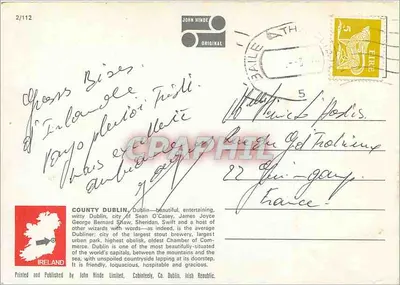 2/112
JOHN HINDE
ORIGINAL
BAILE ÁTH
5
EIRE
5
Grosses Bises
d'Irlande
temps pluvieux
mais excellente
ambiance
22 Guingamp
France
CPARAPHIL
COUNTY DUBLIN, Dublin—beautiful, entertaining,
witty Dublin, city of Sean O'Casey, James Joyce
George Bernard Shaw, Sheridan, Swift and a host of
other wizards with words—as indeed, is the average
Dubliner: city of the largest stout brewery, largest
urban park, highest obelisk, oldest Chamber of Com-
merce. Dublin is one of the most beautifully-situated
of the world's capitals, between the mountains and the
sea, with unspoiled countryside lapping at its doorstep.
It is friendly, loquacious, hospitable and gracious.
IRELAND
Printed and Published by John Hinde Limited, Cabinteely, Co. Dublin, Irish Republic.